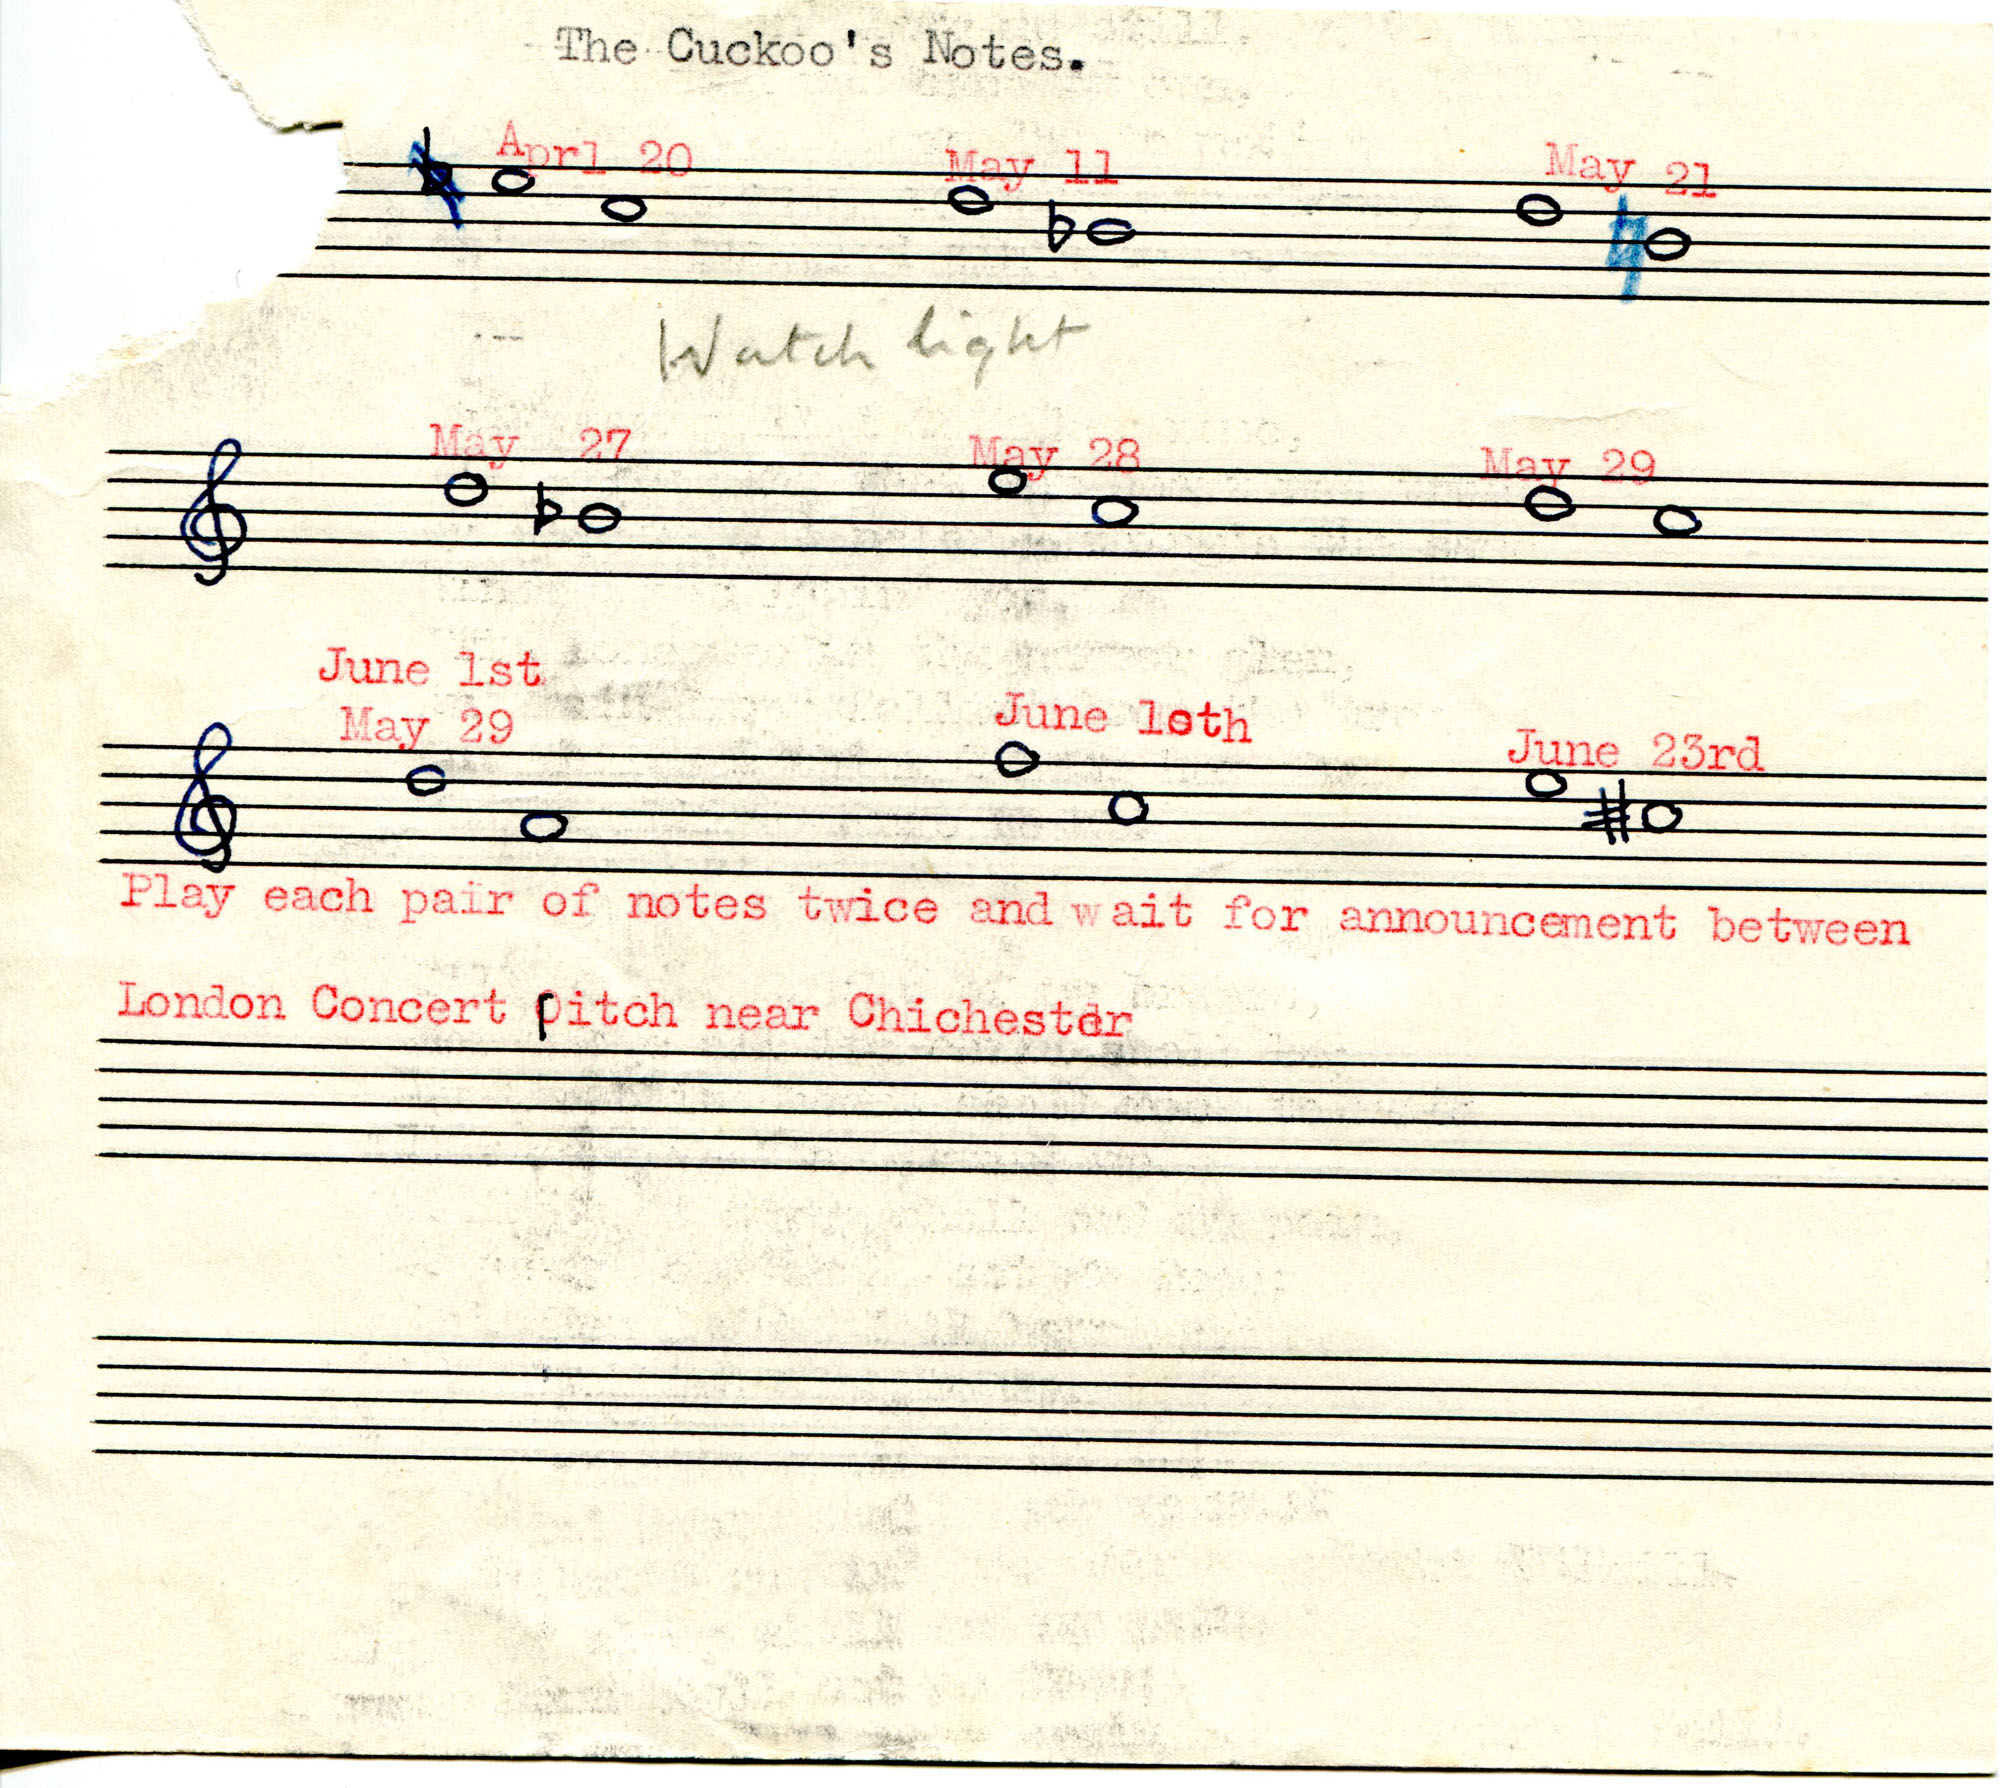 The Cuckoo's Notes.
Aprl 20 May 11 May 21
Watch light
May 27 May 28 May 29
June 1st
May 29 June 10th June 23rd
Play each pair of notes twice and wait for announcement between
London Concert pitch near Chichester